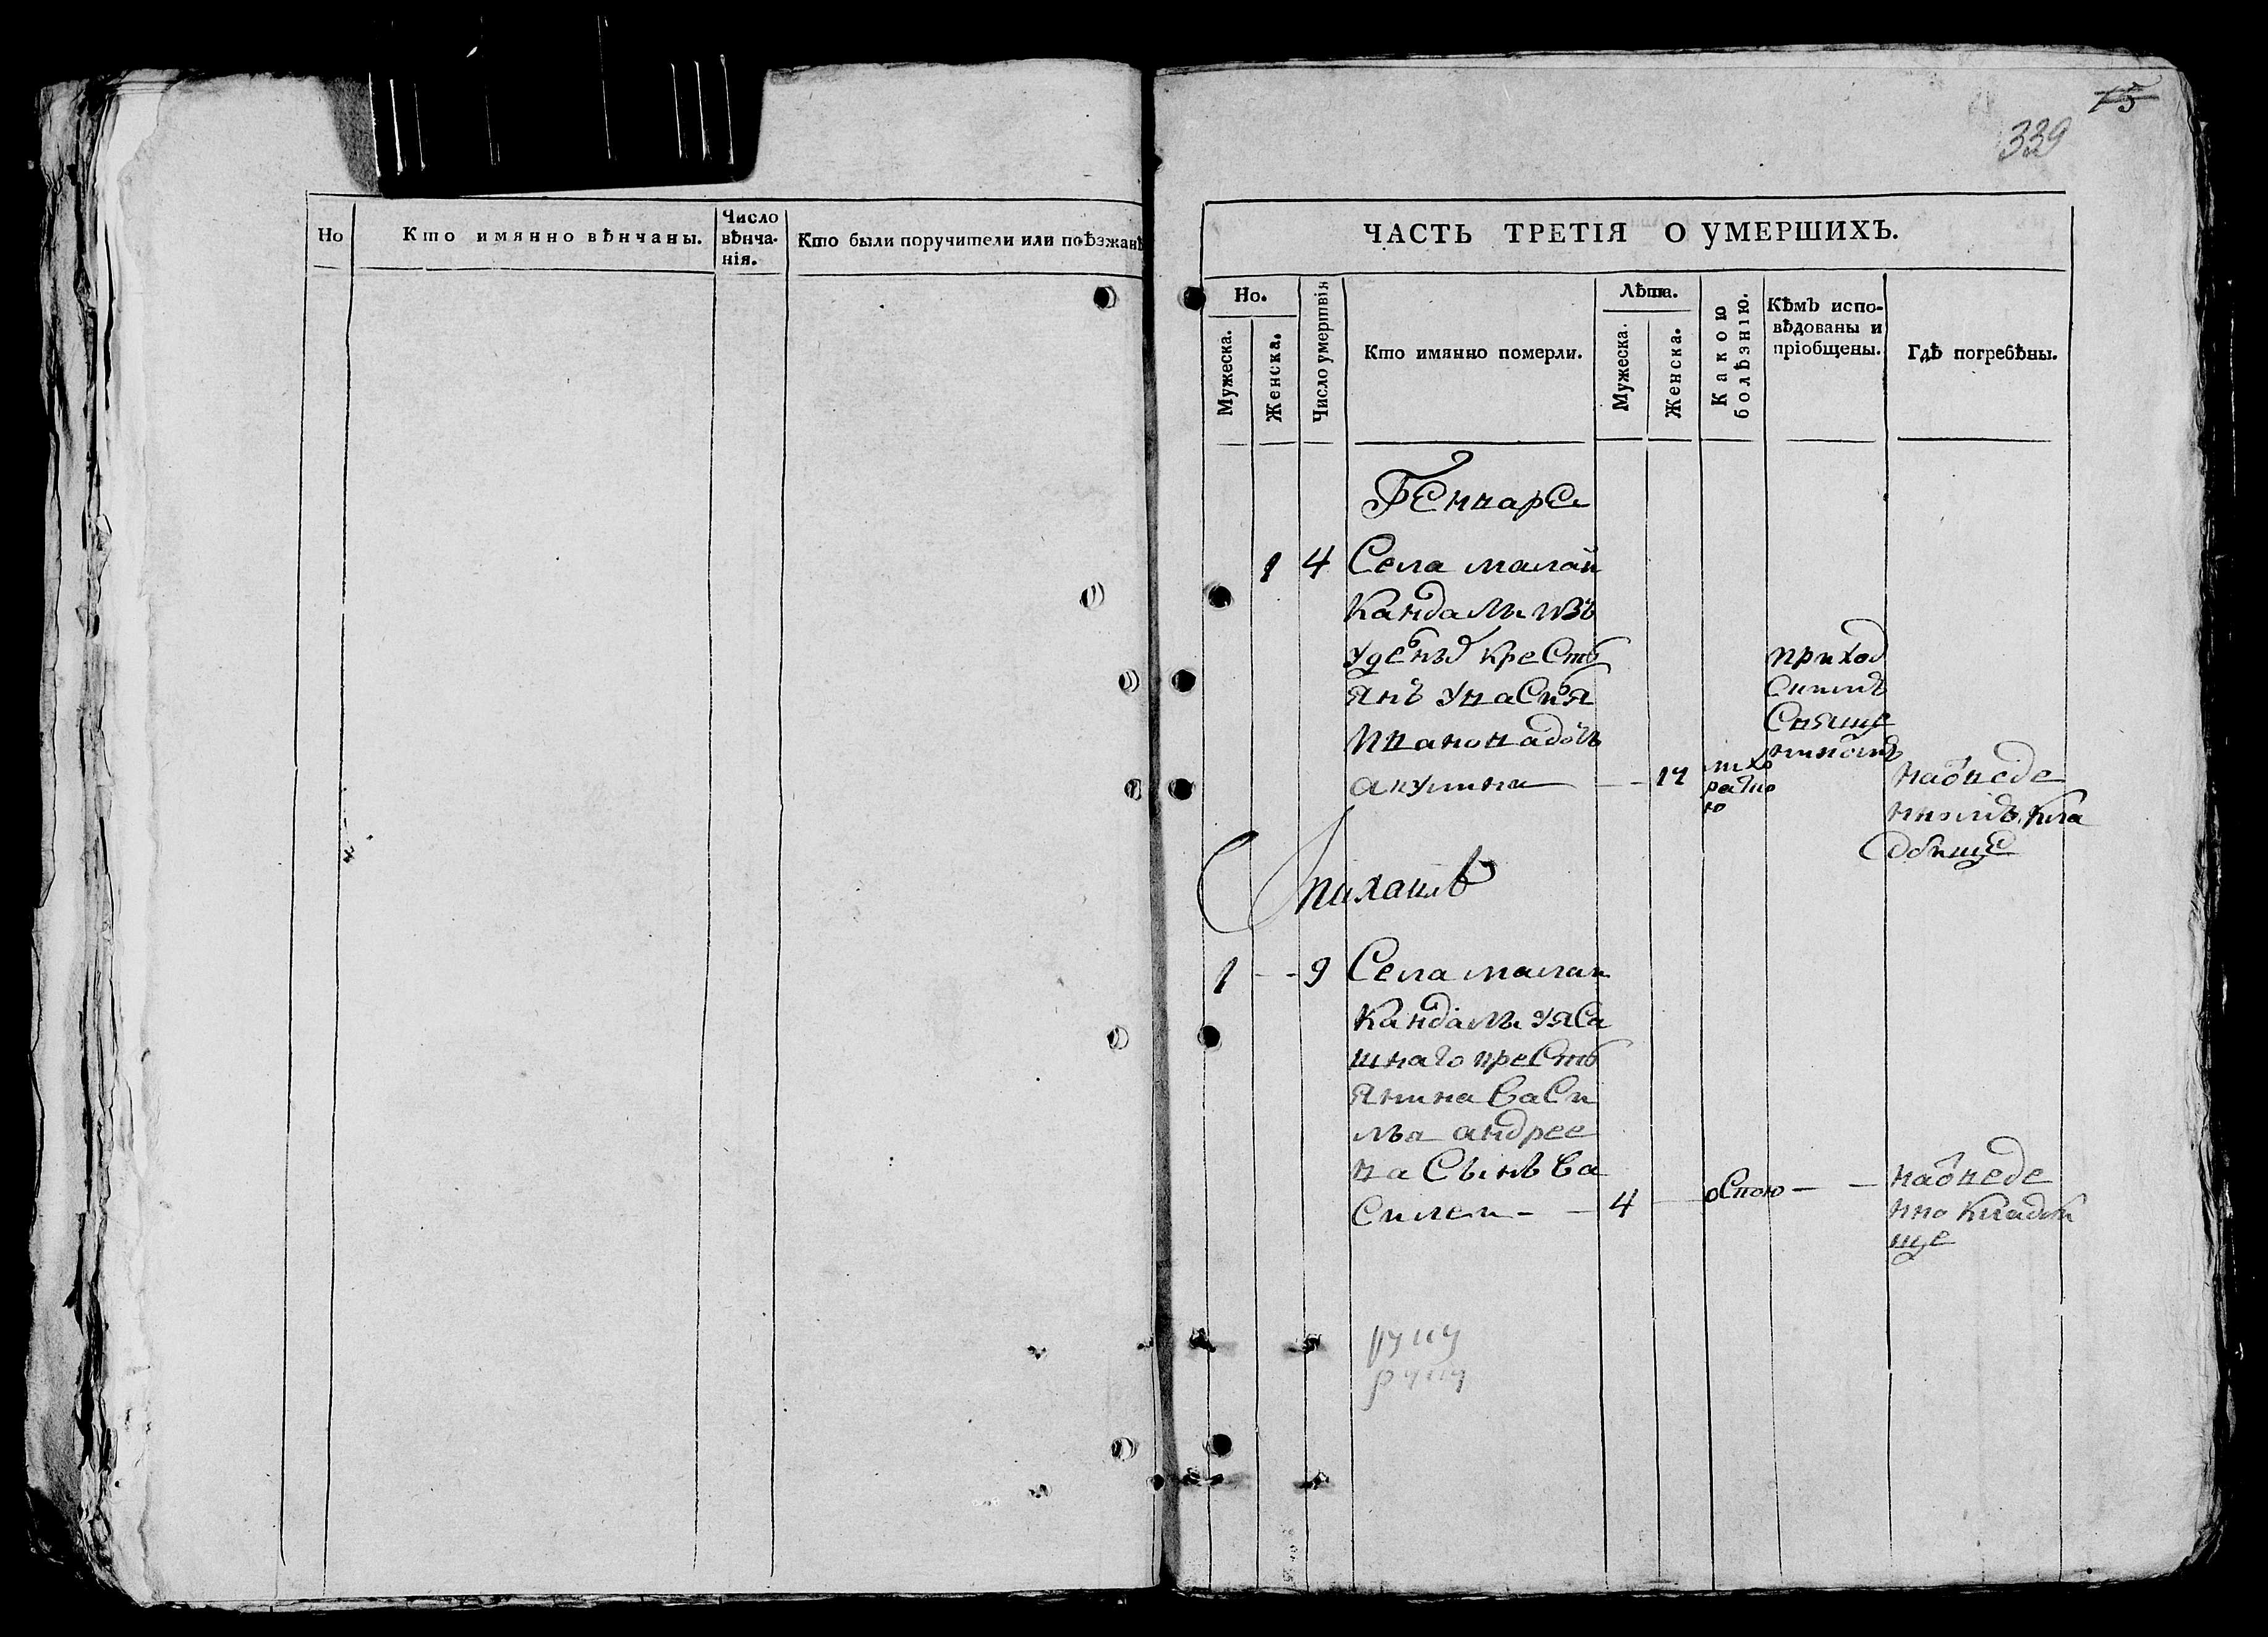 Но
Кто имянно вѣнчаны.
Число
вѣнча-
нія.
Кто были поручители или поѣзжанѣ
15
339
ЧАСТЬ ТРЕТІЯ О УМЕРШИХЪ.
Но.
Мужеска.
Женска.
Число умертвія
Кто имянно померли.
Лѣта.
Мужеска.
Женска.
Какою
болѣзнію.
Кѣмъ испо-
вѣдованы и
пріобщены.
Гдѣ погребѣны.
Генваре
1 4 Села малай
Кандалы изъ
удѣлнъ кресть
янъ
Ивановадочь
акулина 17
лихо
радко
ю
приход
скимъ
Свяще
нникомъ
наотведе
нномъ кла
дбище
1 9 Села малаи
Кандалы уяса
шнаго кресть
янина Васи
лья андрее
ва Сынъ Ва
Силеи 4 оспою
наотведе
нно кладби
ще